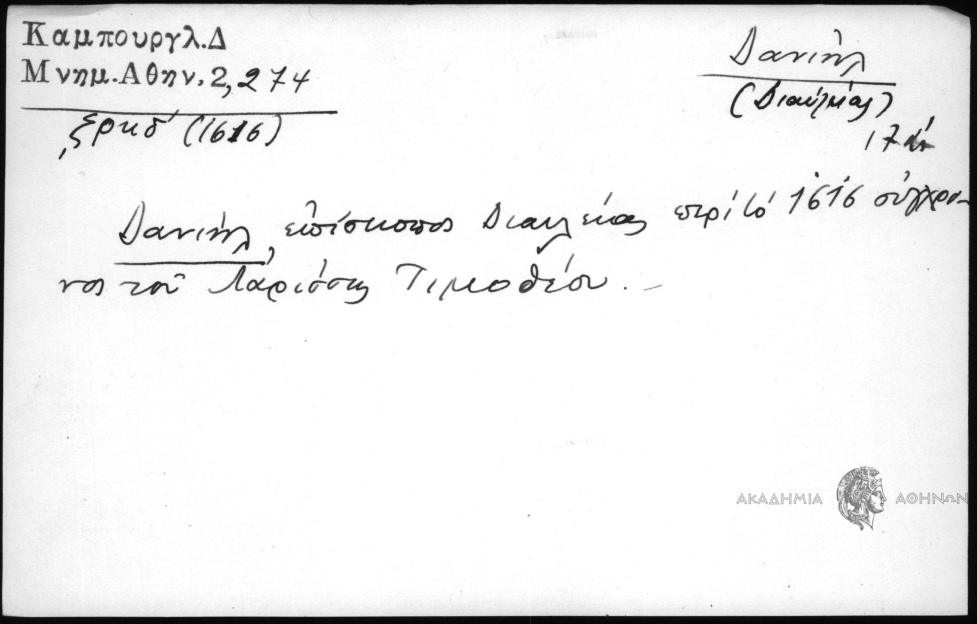 Καμπουργλ.Δ
Μνημ.Αθην.2,274
͵ζρκδ´ (1616)
Δανιήλ
(Διαυλείας)
17 αι
Δανιήλ, επίσκοπος Διαυλείας περί τό 1616 σύγχρο-
νος τού Λαρίσσης Τιμοθέου. –
ΑΚΑΔΗΜΙΑ ΑΘΗΝΩΝ